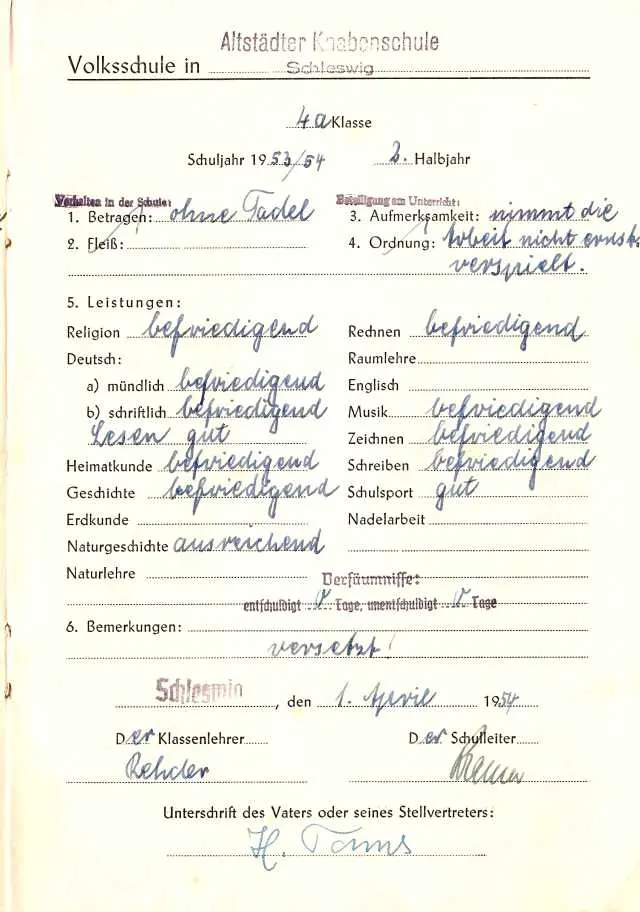 Altstädter Knabenschule
Volksschule in Schleswig
4a Klasse
Schuljahr 1953/54 2. Halbjahr
Verhalten in der Schule: Beteiligung am Unterricht:
1. Betragen: ohne Tadel 3. Aufmerksamkeit: nimmt die
2. Fleiß: 4. Ordnung: Arbeit nicht ernst,
verspielt.
5. Leistungen:
Religion befriedigend Rechnen befriedigend
Deutsch: Raumlehre
a) mündlich befriedigend Englisch
b) schriftlich befriedigend Musik befriedigend
Lesen gut Zeichnen befriedigend
Heimatkunde befriedigend Schreiben befriedigend
Geschichte befriedigend Schulsport gut
Erdkunde Nadelarbeit
Naturgeschichte ausreichend
Naturlehre
Versäumnisse:
entschuldigt Tage, unentschuldigt Tage
6. Bemerkungen:
versetzt!
Schleswig, den 1. April 1954
Der Klassenlehrer Der Schulleiter
Rehder
Unterschrift des Vaters oder seines Stellvertreters:
H. Tams